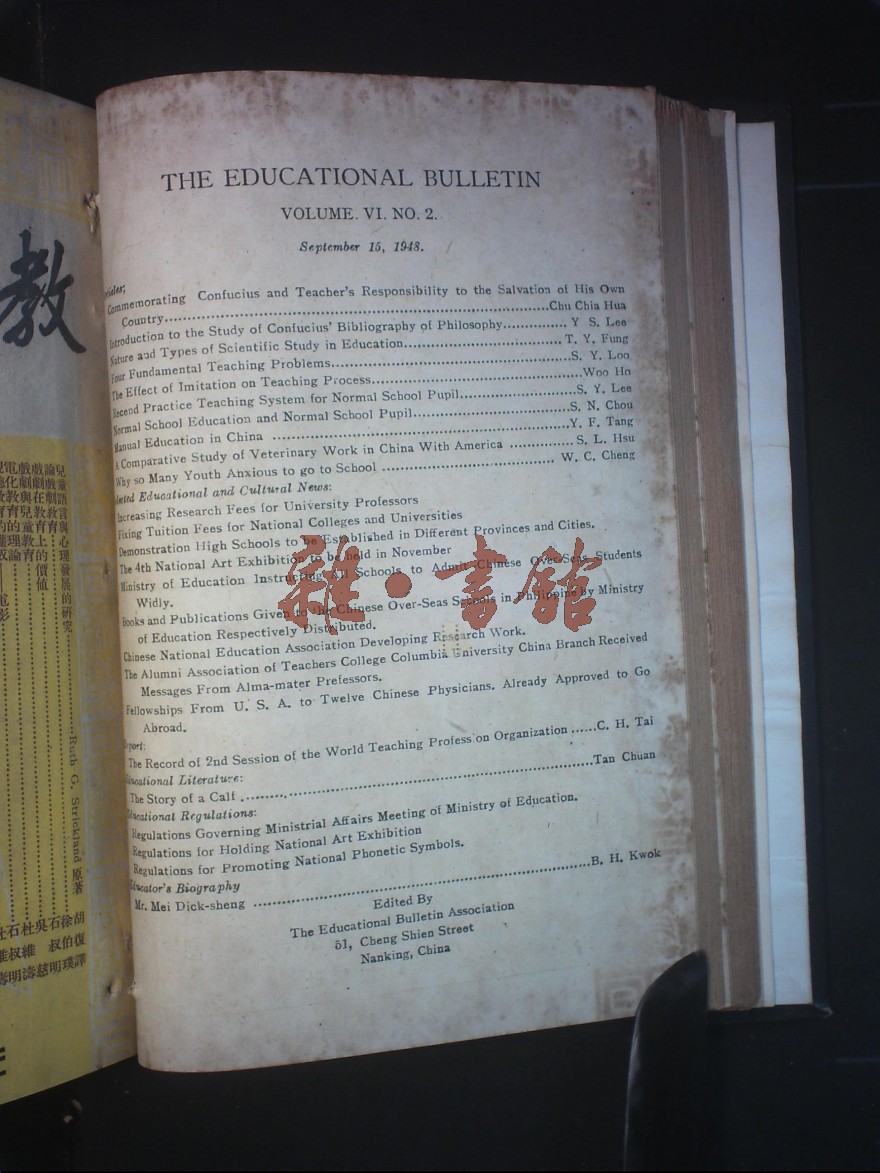 THE EDUCATIONAL BULLETIN
VOLUME. VI. NO. 2.
September 15, 1948.
Commemorating Confucius and Teacher's Responsibility to the Salvation of His Own
Country....Chu Chia Hua
Introduction to the Study of Confucius' Bibliography of Philosophy....Y S. Lee
Nature and Types of Scientific Study in Education....T. Y. Fung
Four Fundamental Teaching Problems....S. Y. Loo
The Effect of Imitation on Teaching Process....Woo Ho
Recend Practice Teaching System for Normal School Pupil....S. Y. Lee
Normal School Education and Normal School Pupil....S. N. Chou
Manual Education in China ....Y. F. Tang
A Comparative Study of Veterinary Work in China With America ....S. L. Hsu
Why so Many Youth Anxious to go to School .... W. C. Cheng
Educational and Cultural News:
Increasing Research Fees for University Professors
Fixing Tuition Fees for National Colleges and Universities
Demonstration High Schools to be Established in Different Provinces and Cities.
The 4th National Art Exhibition to be held in November
Ministry of Education Instructing All Schools to Admit Chinese Over-Seas Students
Widly.
Books and Publications Given to the Chinese Over-Seas Schools in Philippine By Ministry
of Education Respectively Distributed.
Chinese National Education Association Developing Research Work.
The Alumni Association of Teachers College Columbia University China Branch Received
Messages From Alma-mater Prefessors.
Fellowships From U. S. A. to Twelve Chinese Physicians. Already Approved to Go
Abroad.
The Record of 2nd Session of the World Teaching Profess on Organization ......C. H. Tai
Educational Literature:
The Story of a Calf ....Tan Chuan
Educational Regulations:
Regulations Governing Ministrial Affairs Meeting of Ministry of Education.
Regulations for Holding National Art Exhibition
Regulations for Promoting National Phonetic Symbols.
Educator's Biography
Mr. Mei Dick-sheng ....B. H. Kwok
Edited By
The Educational Bulletin Association
51, Cheng Shien Street
Nanking, China
雜·書館
教
兒童語言與心理發展的研究....Ruth G. Strickland 原著
胡復璞譯